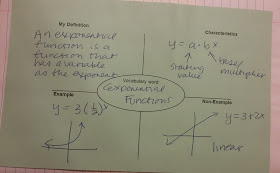 My Definition
An exponential
function is a
function that
has a variable
as the exponent
Characteristics
y = a · bˣ
starting
value
base/
multiplier
Vocabulary word
exponential
Functions
Example
y = 3(½)ˣ
Non-Example
y = 3+2x
linear